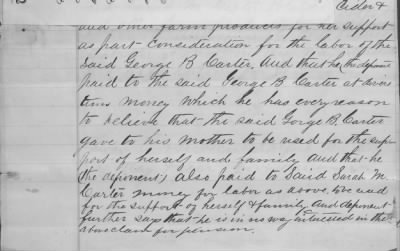 Cider &
and other farm produces for her support
as part consideration for the labor of the
Said George B Carter, And that he (the deponent)
paid to the said George B Carter at divers
times money which he has every reason
to believe that the said Gorge B. Carter
gave to his mother to be used for the sup-
port of herself and family And that he
(the deponent) also paid to Said Sarah M.
Carter money for labor as above, used
for the support of herself & family And deponent
further says that he is in no way interested in the
above claim for pension.